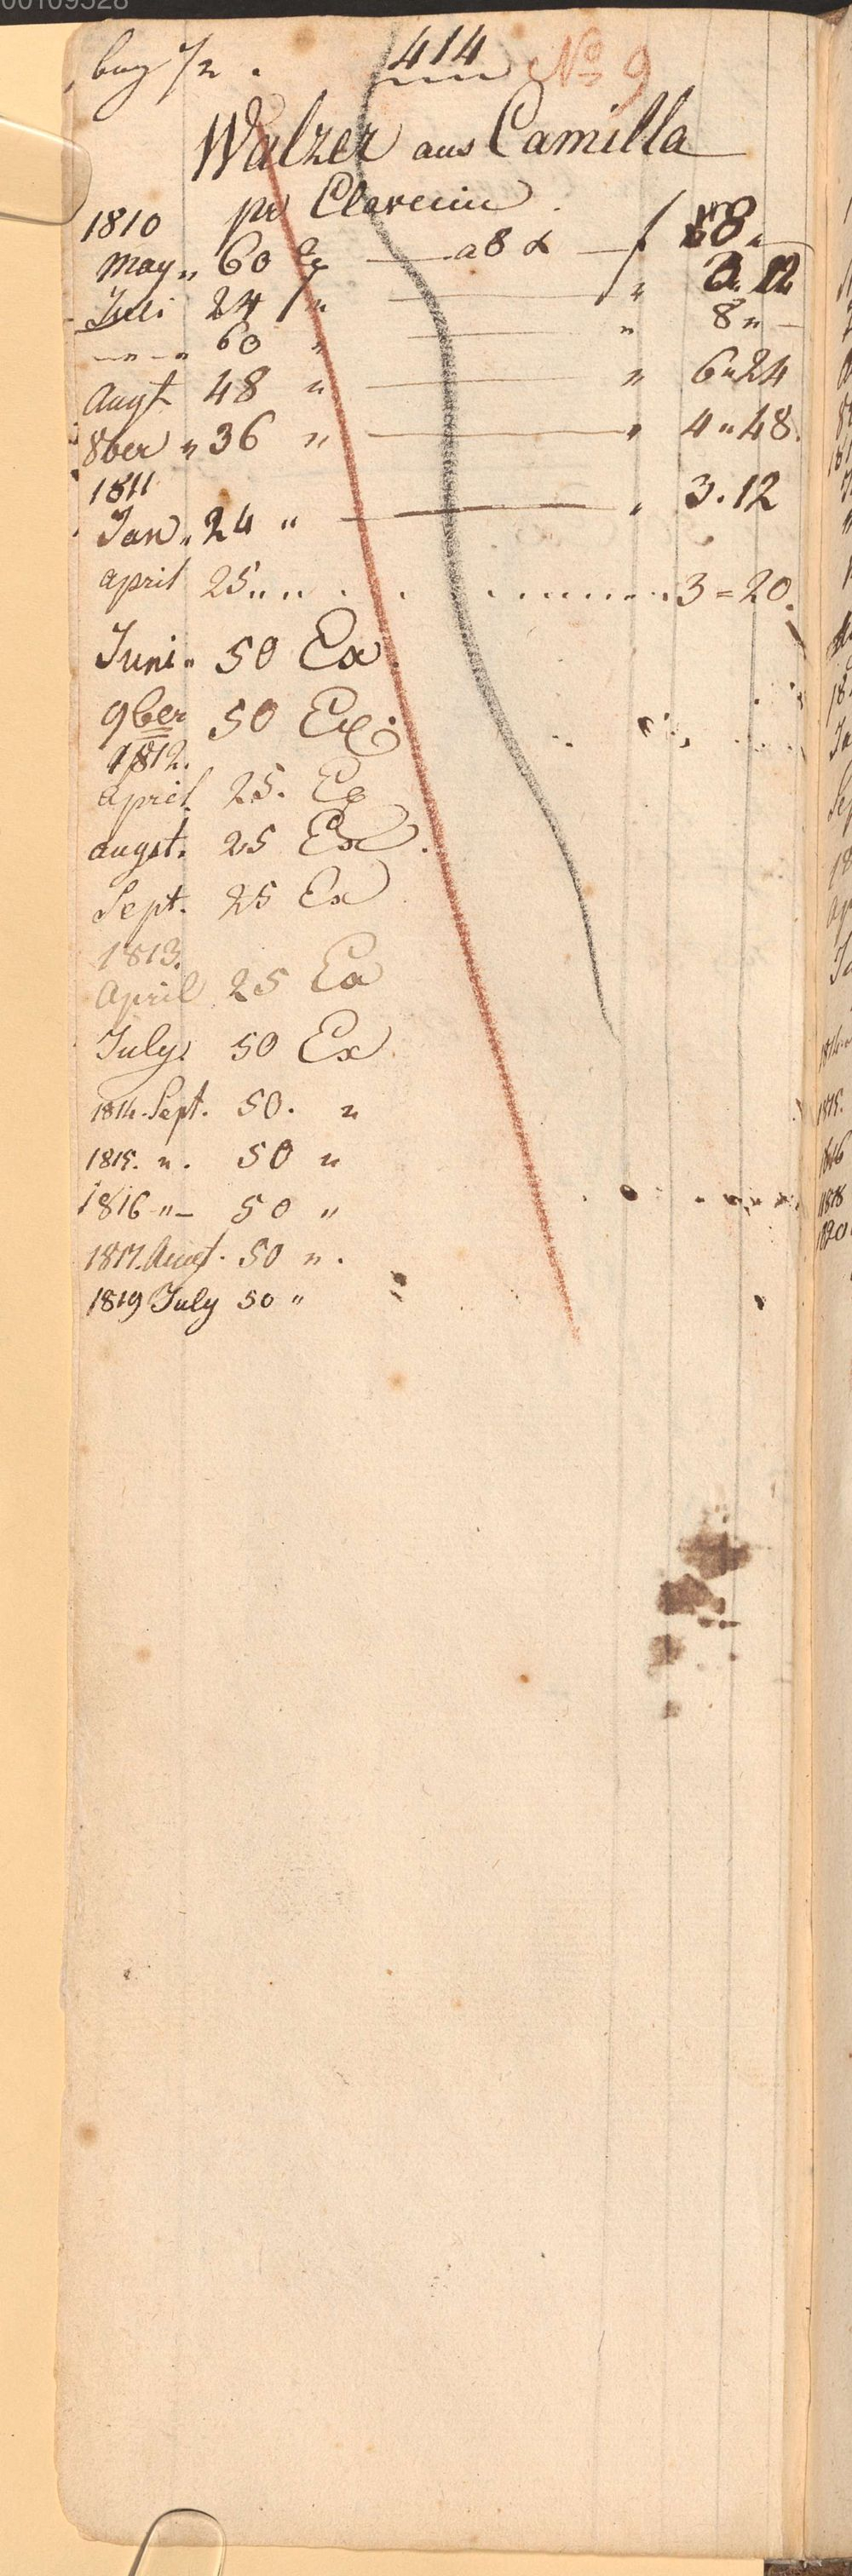 00109528
bog 1/2. 414 No 9
Walzer aus Camilla
pr Clavecin.
1810
May „ 60 Ex a 8 x f 8 „ —
Juli 24 „ „ 3 „ 12
— „ — „ 60 „ „ 8 „ —
Augt 48 „ „ 6 „ 24
8ber „ 36 „ „ 4 „ 48.
1811
Jan „ 24 „ „ 3. 12
April 25 „ „ 3 = 20.
Juni „ 50 Ex
9ber 50 Ex.
1812.
April 25. Ex
augst. 25 Ex.
Sept. 25 Ex
1813.
April 25 Ex
July. 50 Ex
1814. Sept. 50. „
1815. „. 50 „
1816 „ — 50 „
1817. Augt. 50 „.
1819 July 50 „